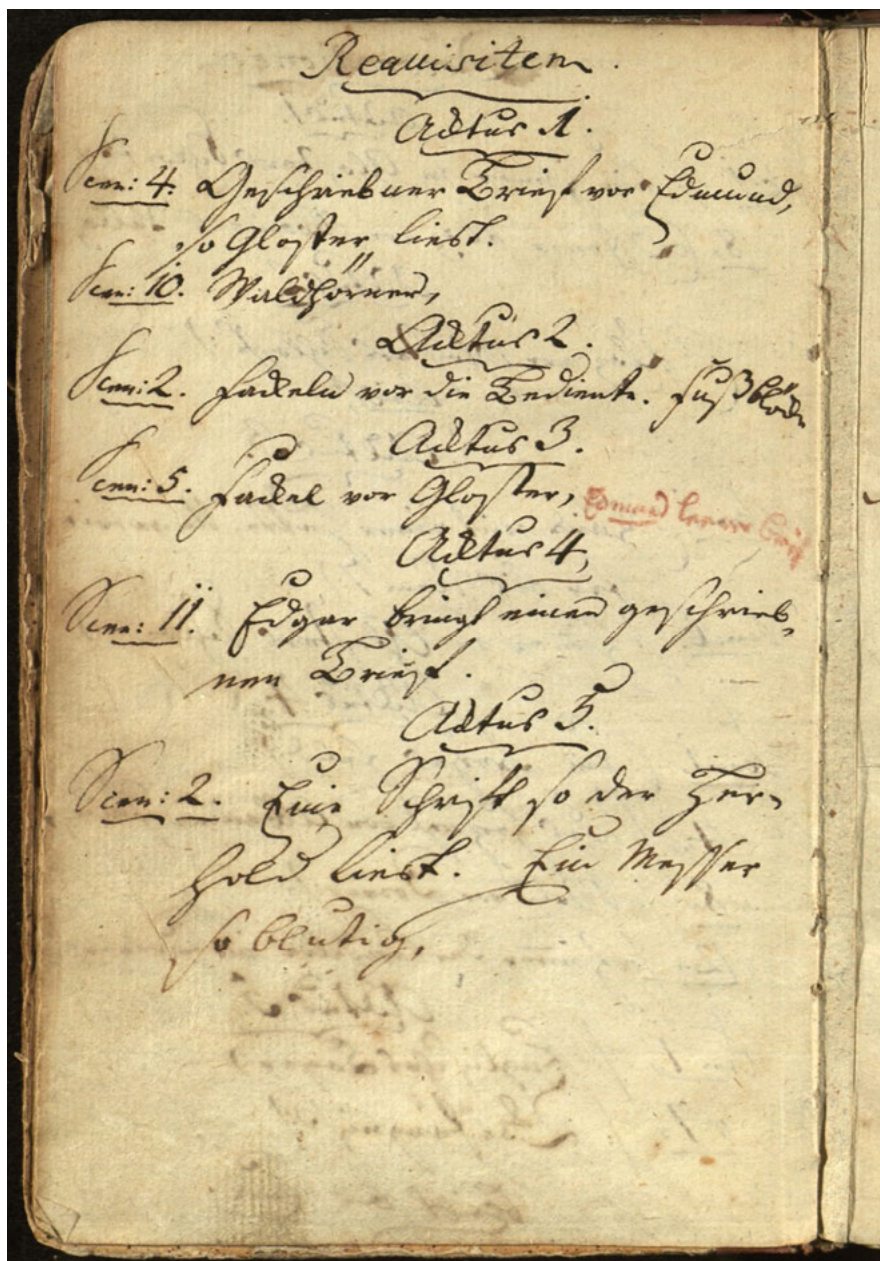 Requisiten.
Actus 1.
Scen: 4. Geschriebner Brief vor Edmund,
so Gloster liest.
Scen: 10. Waldhörner,
Actus 2.
Scen: 2. Fackeln vor die Bediente. Fußblöcke
Actus 3.
Scen: 5. Fackel vor Gloster, Edmund Brief
Actus 4,
Scen: 11. Edgar bringt einen geschrieb-
nen Brief.
Actus 5.
Scen: 2. Eine Schrift so der Her-
hold liest. Ein Messer
so blutig,